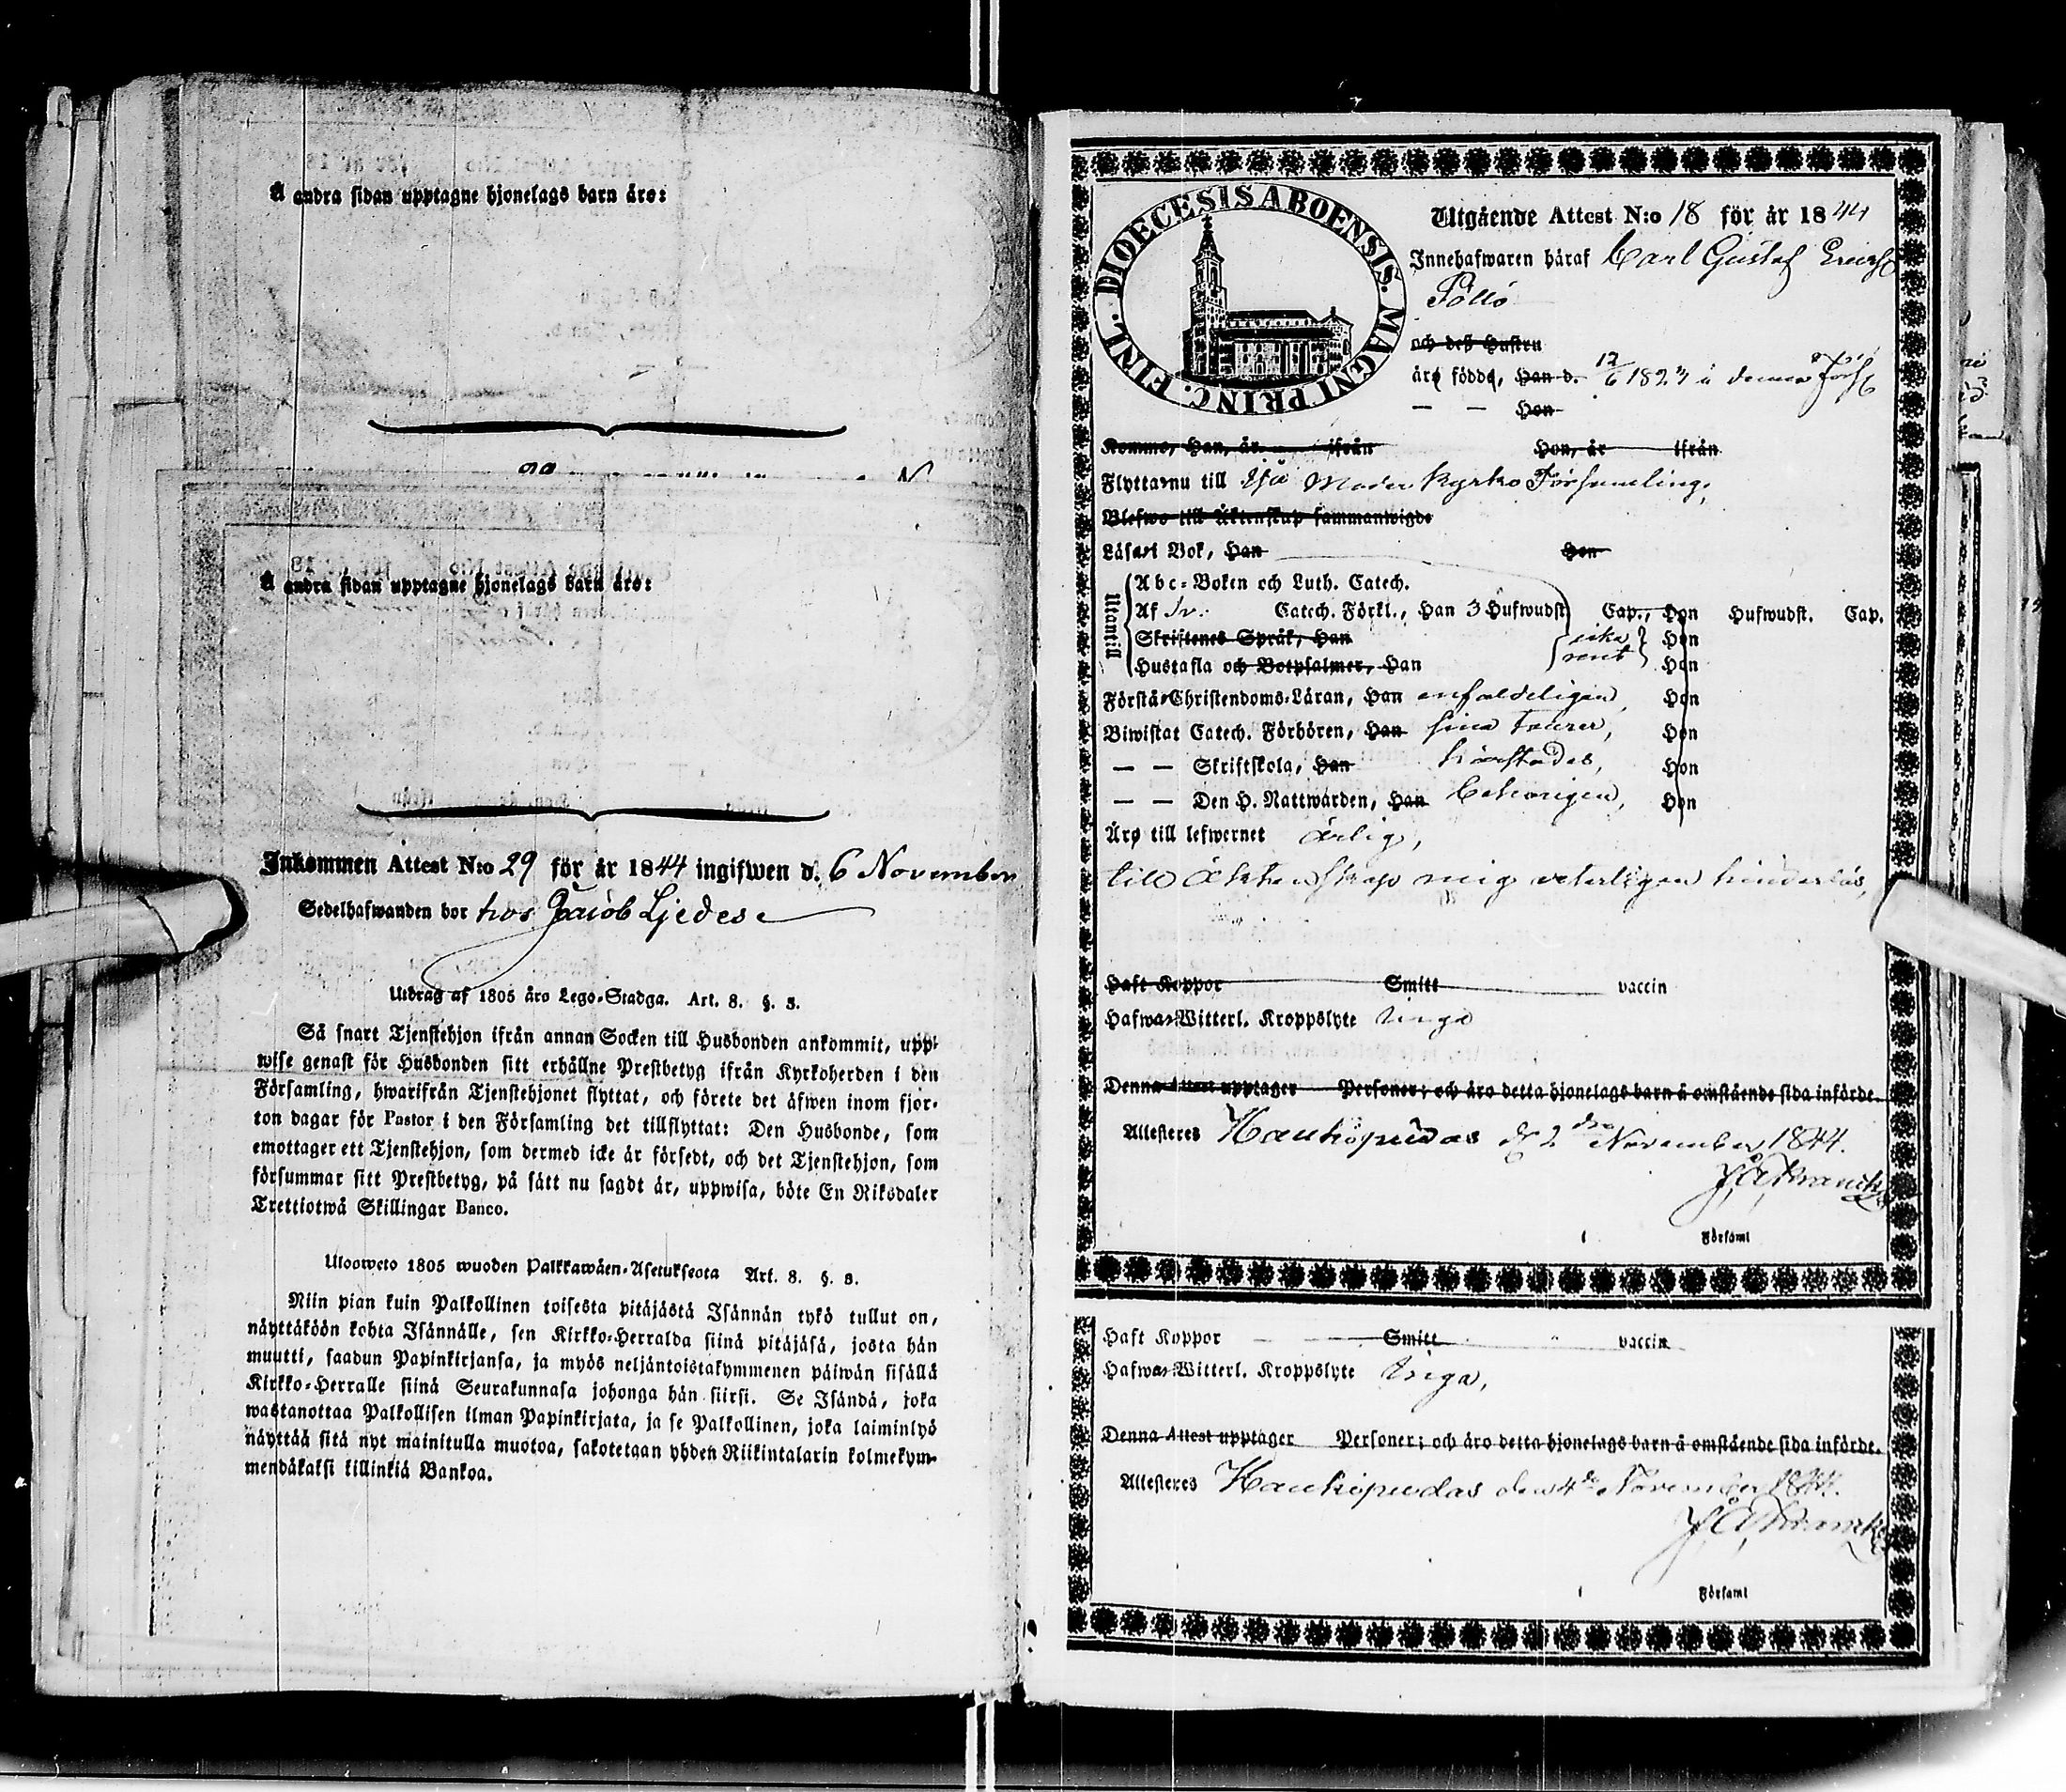 Å andra sidan upptagne hjonelags barn äro:
Å andra sidan upptagne hjonelags barn äro:
Inkommen Attest N:o 29 för år 1844 ingifwen d. 6 November
Sedelhafwanden bor hos Jacob Ljedes
Utdrag af 1805 års Lego-Stadga. Art. 8. §. 3.
Så snart Tjenstehjon ifrån annan Socken till Husbonden ankommit, upp-
wise genast för Husbonden sitt erhållne Prestbetyg ifrån Kyrkoherden i den
Församling, hwarifrån Tjenstehjonet flyttat, och förete det äfwen inom fjor-
ton dagar för Pastor i den Församling det tillflyttat: Den Husbonde, som
emottager ett Tjenstehjon, som dermed icke är försedt, och det Tjenstehjon, som
försummar sitt Prestbetyg, på sätt nu sagdt är, uppwisa, böte En Riksdaler
Trettiotwå Skillingar Banco.
Uloosweto 1805 wuoden Palkkawäen-Asetuksesta Art. 8. §. 3.
Niin pian kuin Palkollinen toisesta pitäjästä Isännän tykö tullut on,
näyttäköön kohta Isännälle, sen Kirkko-Herralda siinä pitäjäsä, josta hän
muutti, saadun Papinkirjansa, ja myös neljäntoistakymmenen päiwän sisällä
Kirkko-Herralle siinä Seurakunnasa johonga hän siirsi. Se Isändä, joka
wastanottaa Palkollisen ilman Papinkirjata, ja se Palkollinen, joka laiminlyö
näyttää sitä nyt mainitulla muotoa, sakotetaan yhden Riikintalarin kolmekym-
mendäkaksi killinkiä Bankoa.
DIOECESIS ABOENSIS. MAGNI PRINC. FINL.
Utgående Attest N:o 18 för år 1844
Innehafwaren häraf Carl Gustaf Ericss
Pöllö
och deß Hustru
äro födde, Han d. 12/6 1823 i denna Förs
— — Hon
Kommo, Han, år ifrån Hon, år ifrån
Flytta nu till Ijo Moder kyrko Församling,
Blefwo till Äktenskap sammanwigde
Läsa i Bok, Han Hon
Utantill
Abc-Boken och Luth. Catech.
Af Sv. Catech. Förkl., Han 3 Hufwudst. Cap., Hon Hufwudst. Cap.
Skriftenes Språk, Han Hon
Hustafla och Botpsalmer, Han Hon
Förstå Christendoms-Läran, Han enfaldeligen, Hon
Biwistat Catech. Förhören, Han sina tourer, Hon
— — Skriftskola, Han härstädes, Hon
— — Den H. Nattwarden, Han behörigen, Hon
Äro till lefwernet ärlig,
till Äktenskap mig veterligen hinderlös,
Haft Koppor Smitt vaccin
Hafwa Witterl. Kroppslyte Inga
Denna Attest upptager Personer; och äro detta hjonelags barn å omstående sida införde.
Attesteras Haukipudas d 2 dra November 1844.
J. A. Kranck
i Församl
Haft Koppor Smitt vaccin
Hafwa Witterl. Kroppslyte Inga,
Denna Attest upptager Personer; och äro detta hjonelags barn å omstående sida införde.
Attesteras Haukipudas den 4de November 1844.
J. A. Kranck
i Församl